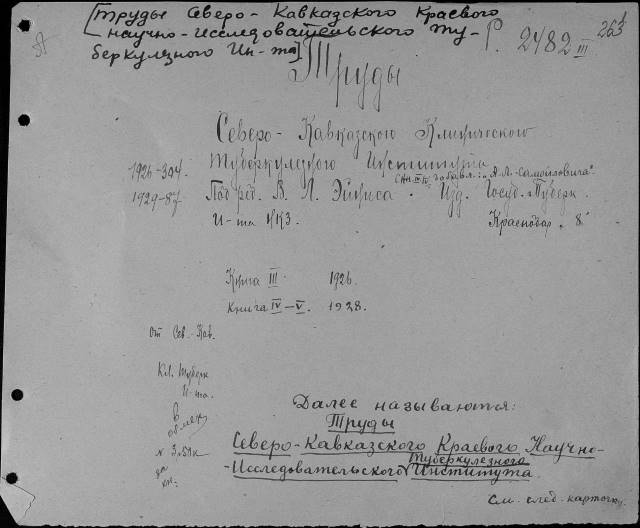 [Труды Северо-Кавказского Краевого
научно-исследовательского ту-
беркулезного Ин-та]
Р. 2482 III
263
Труды
Северо-Кавказского Клинического
Туберкулезного Института
1926-304.
1929-87.
с кн. IV-V добавл.: "А.Л. Самойловича".
Под ред. В. Л. Эйниса. Изд. Госуд. Туберк.
И-та ККЗ. Краснодар, 8°
Книга III 1926.
Книга IV-V. 1928.
От Сев.-Кав.
Кл. Туберк
И-та.
в
обмен
Далее называются:
Труды
Северо-Кавказского Краевого Научно-
-Исследовательского Туберкулезного Института.
См. след. карточку.